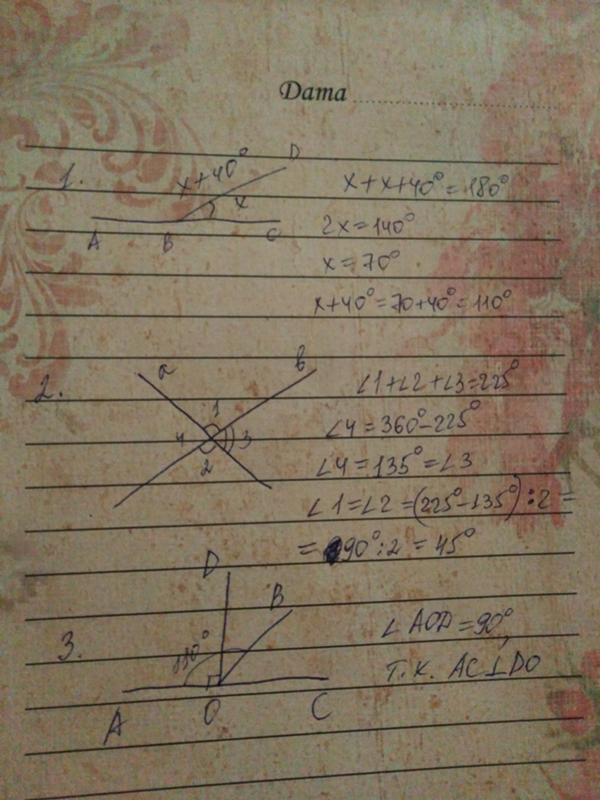 Дата
1.
x+40°
D
x
A B C
x+x+40°=180°
2x=140°
x=70°
x+40°=70+40°=110°
2.
a
b
1
4 3
2
∠1+∠2+∠3=225°
∠4=360°-225°
∠4=135°=∠3
∠1=∠2=(225°-135°):2=
=90°:2=45°
3.
D
B
110°
A O C
∠AOD=90°,
т.к. AC⊥DO